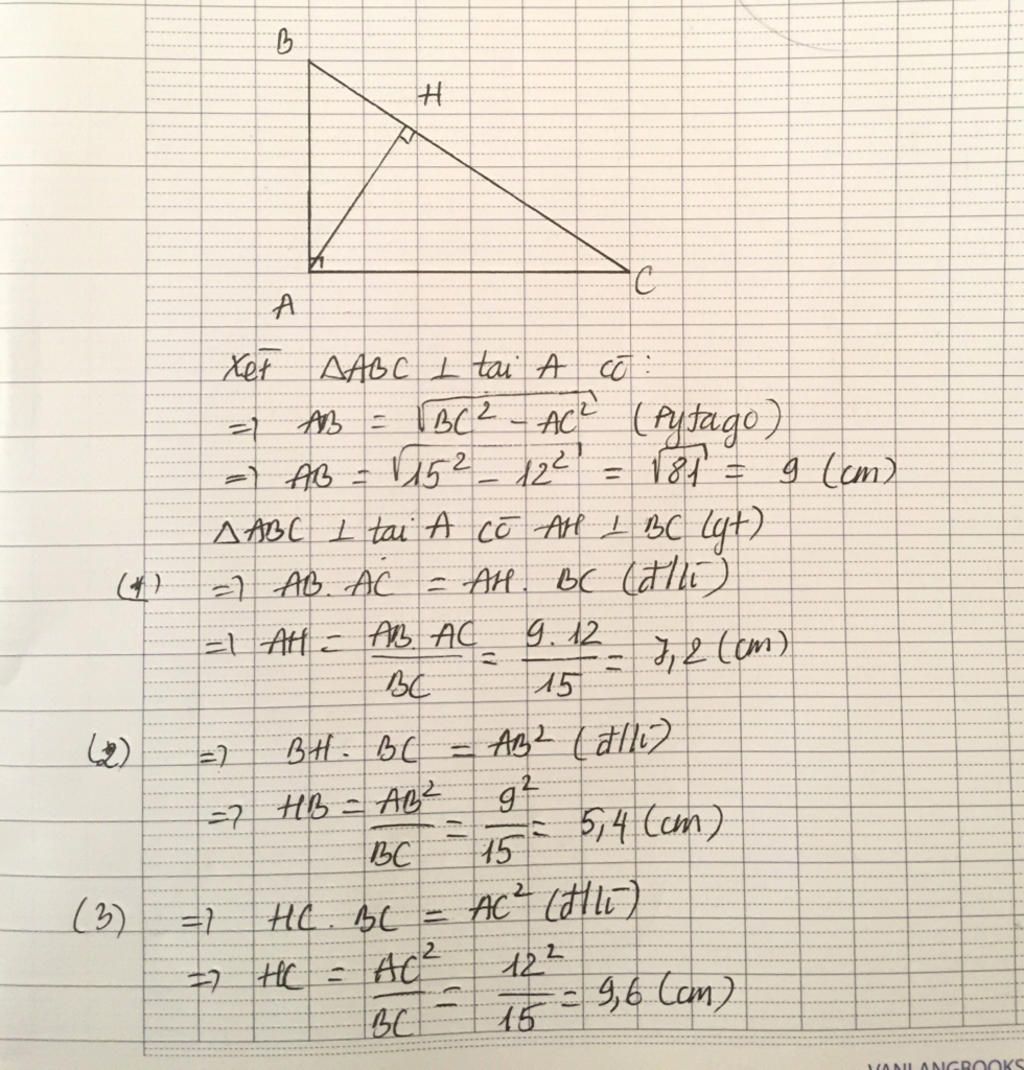 B
H
A
C
Xét ΔABC ⊥ tại A có:
=> AB = √(BC² - AC²) (Pytago)
=> AB = √(15² - 12²) = √81 = 9 (cm)
ΔABC ⊥ tại A có AH ⊥ BC (gt)
(1) => AB. AC = AH. BC (đ/lí)
=> AH = AB. AC / BC = 9. 12 / 15 = 7,2 (cm)
(2) => BH. BC = AB² (đ/lí)
=> HB = AB² / BC = 9² / 15 = 5,4 (cm)
(3) => HC. BC = AC² (đ/lí)
=> HC = AC² / BC = 12² / 15 = 9,6 (cm)
VANLANGBOOKS